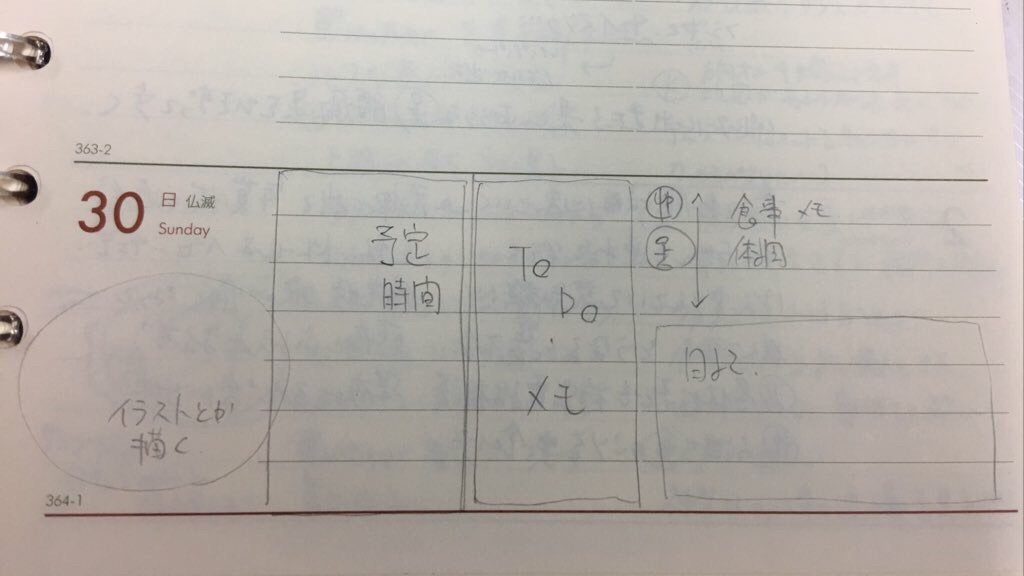 363-2
30 日 仏滅
Sunday
予定
時間
To
Do
・
メモ
食事 メモ
体調
イラストとか
描く
364-1